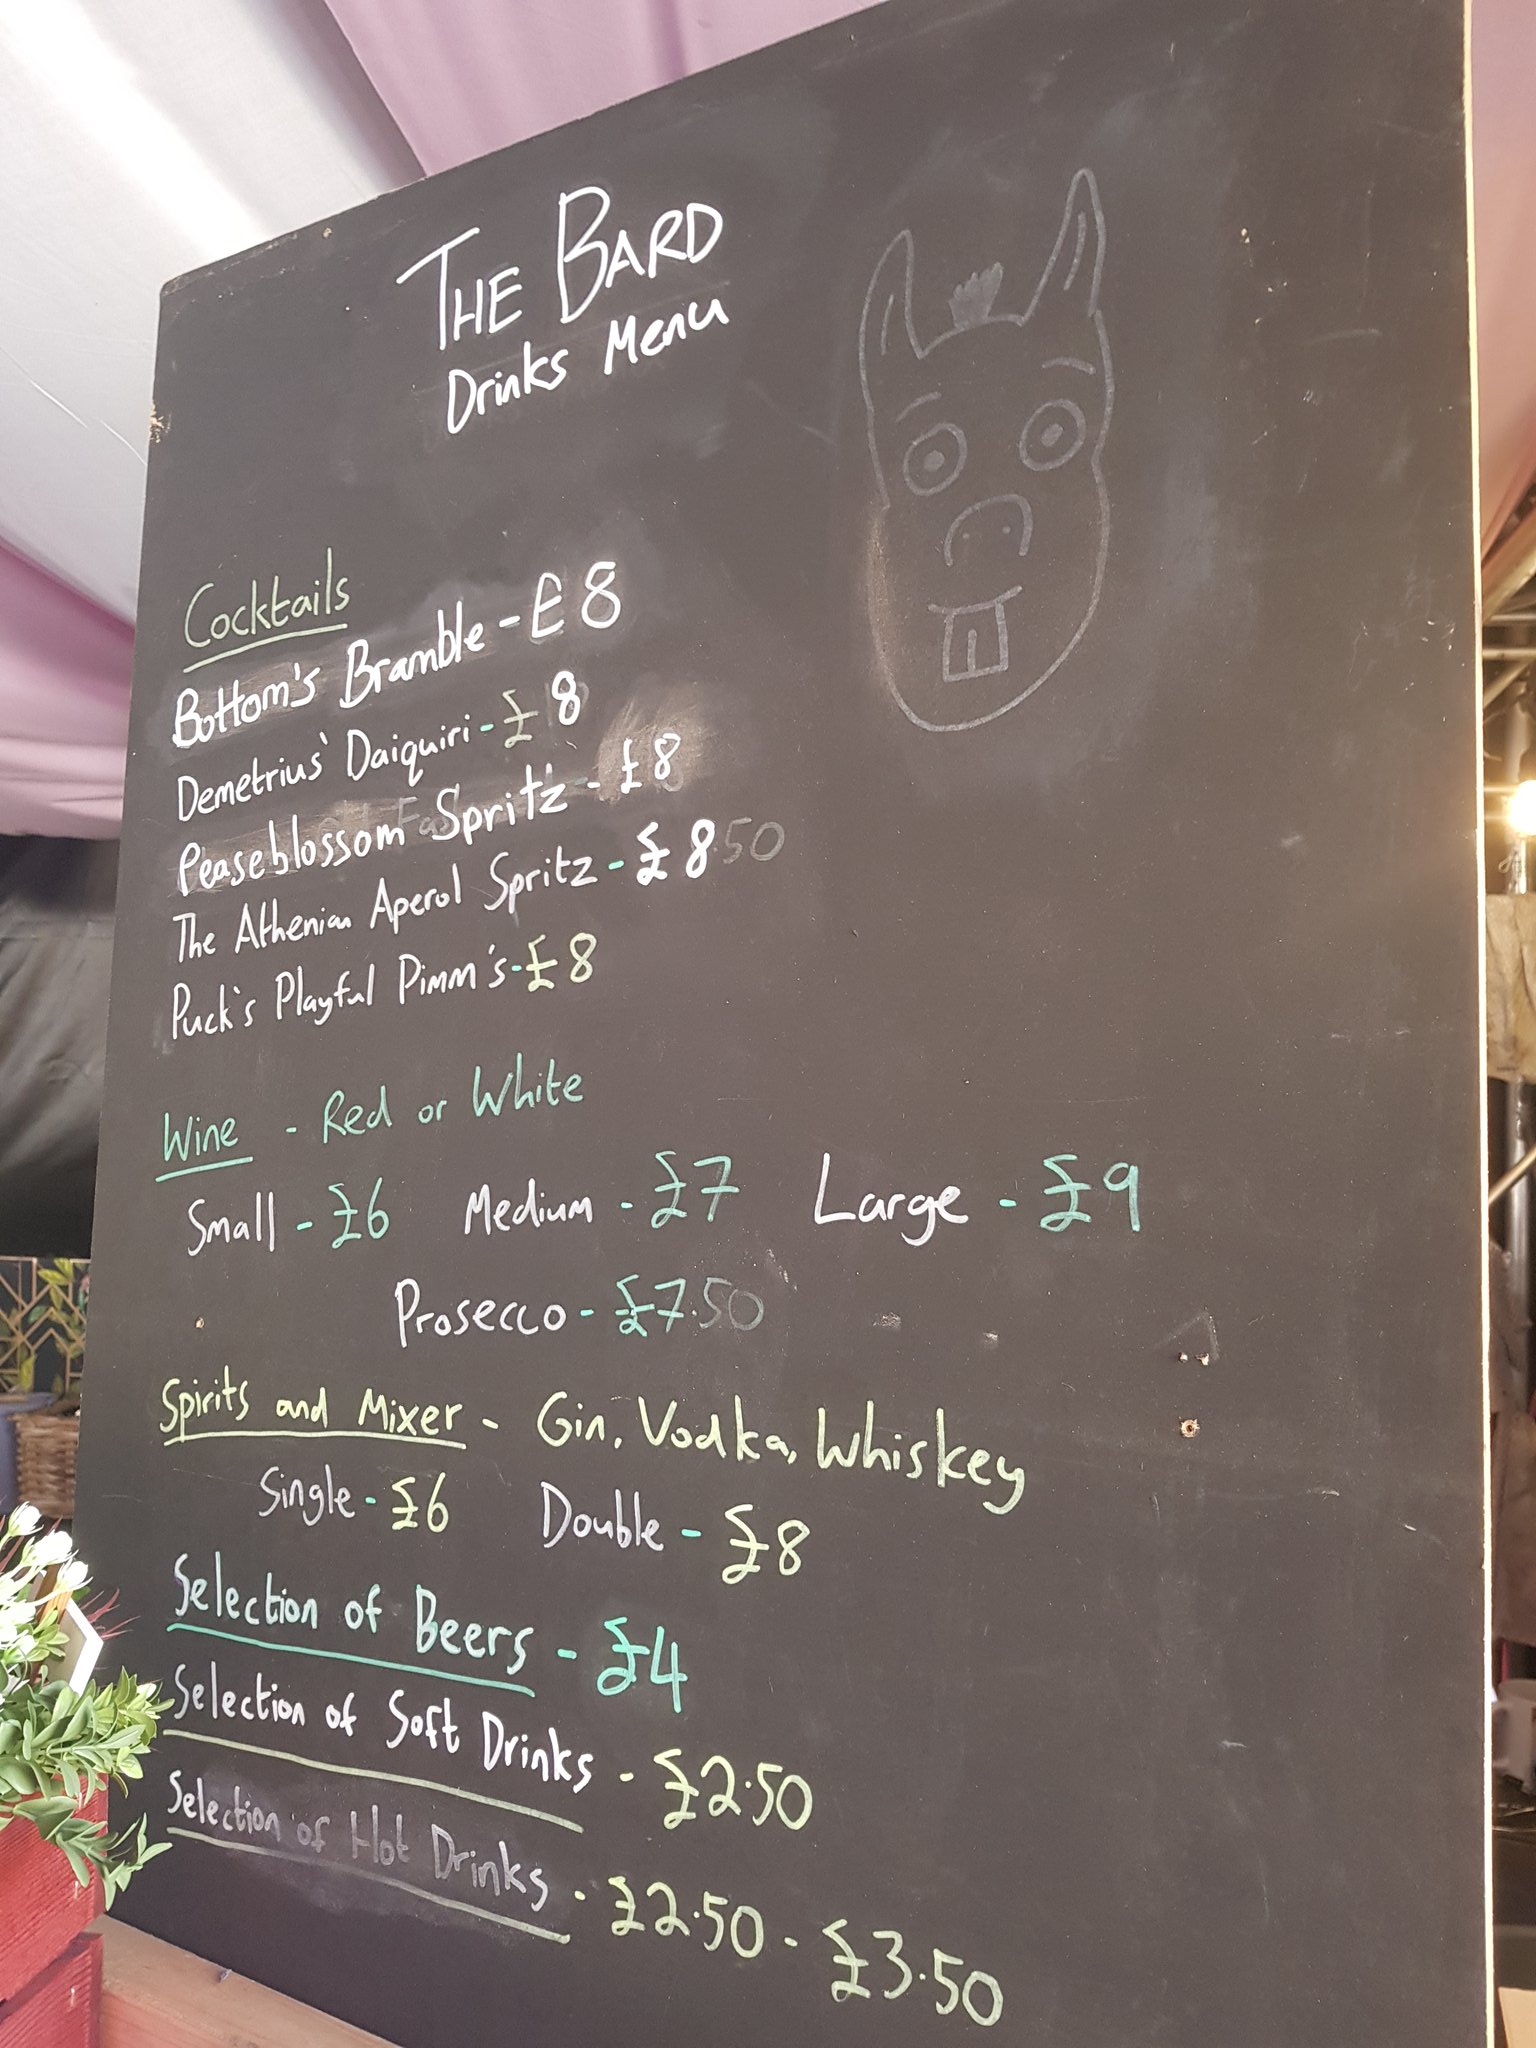 THE BARD
Drinks Menu
Cocktails
Bottom's Bramble - £8
Demetrius' Daiquiri - £8
Peaseblossom Spritz - £8
The Athenian Aperol Spritz - £8.50
Puck's Playful Pimm's - £8
Wine - Red or White
Small - £6 Medium - £7 Large - £9
Prosecco - £7.50
Spirits and Mixer - Gin, Vodka, Whiskey
Single - £6 Double - £8
Selection of Beers - £4
Selection of Soft Drinks - £2.50
Selection of Hot Drinks - £2.50 - £3.50